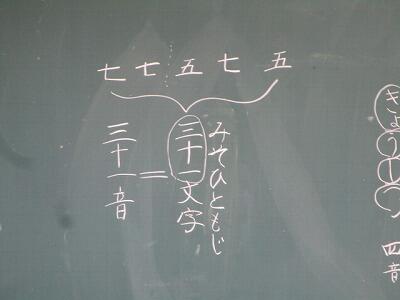 五七五七七
みそひともじ
三十一文字
＝
三十一音
きょ
四音